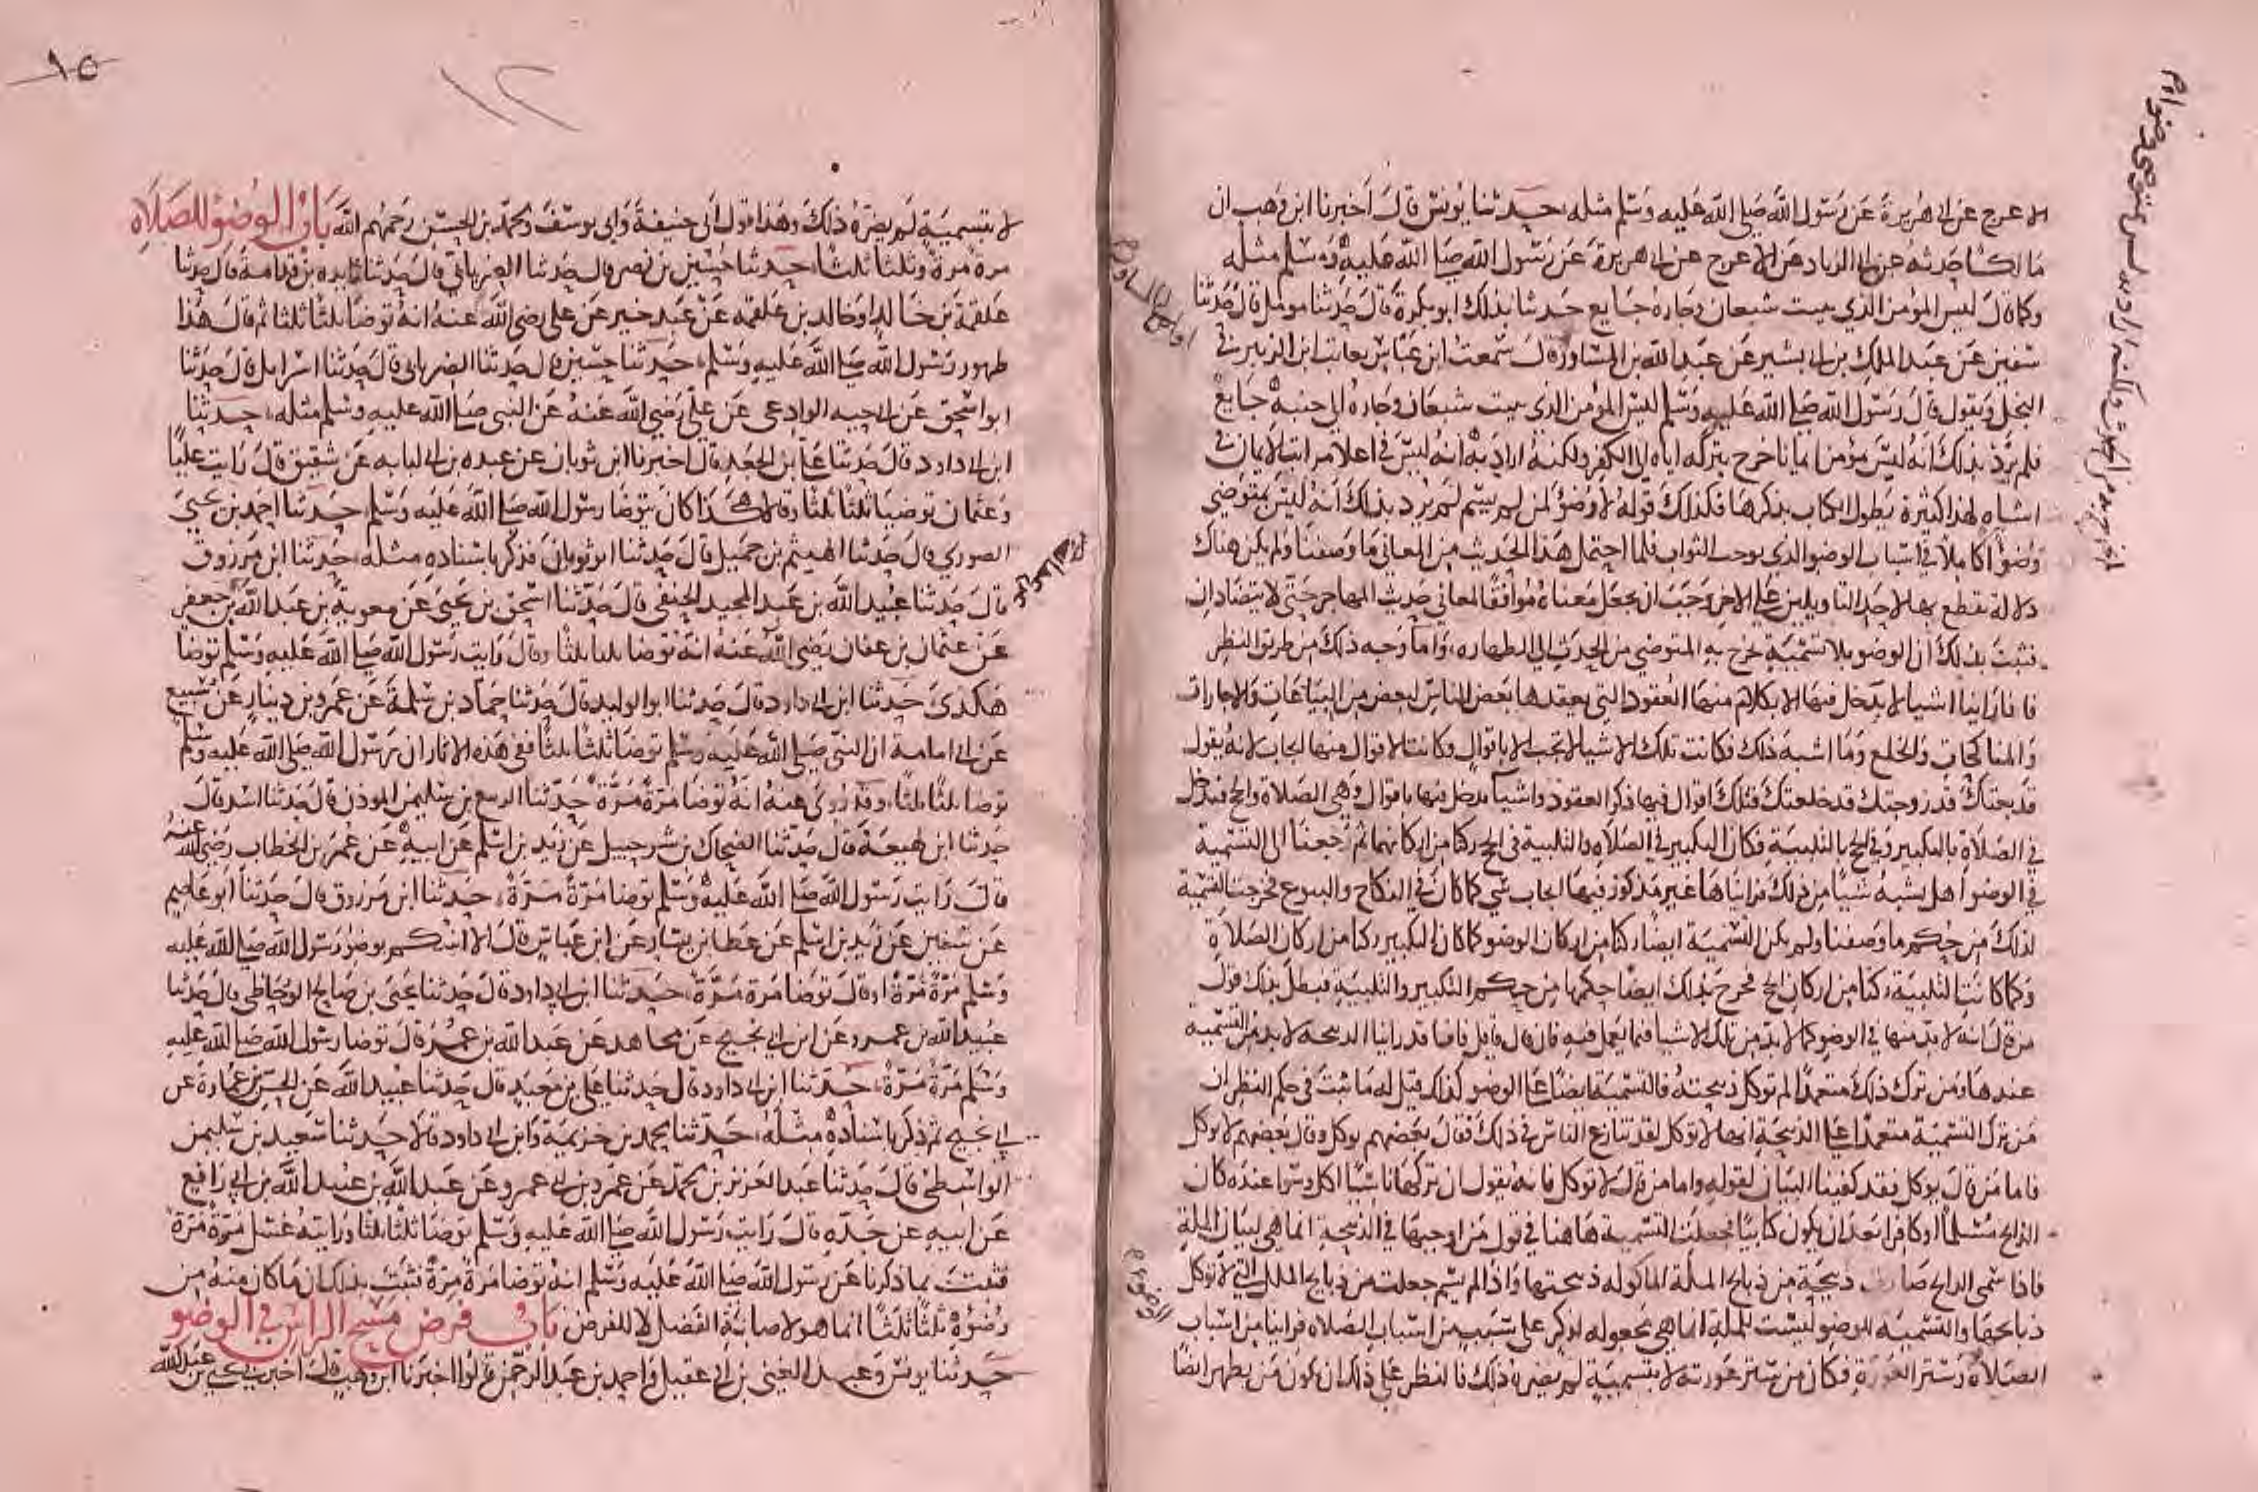 الاعرج عن ابي هريرة عن رسول الله صلى الله عليه وسلم مثله، حدثنا يونس قال اخبرنا ابن وهب ان
مالكا حدثه عن ابي الزناد عن الاعرج عن ابي هريرة عن رسول الله صلى الله عليه وسلم مثله
وكما قال ليس المؤمن الذي يبيت شبعان وجاره جايع حدثنا بذلك ابو بكرة قال حدثنا مومل قال حدثنا
سفين عن عبد الملك بن ابي بشير عن عبد الله بن المساور قال سمعت ابن عباس يعاتب ابن الزبير في
البخل ويقول قال رسول الله صلى الله عليه وسلم ليس المؤمن الذي يبيت شبعان وجاره الى جنبه جايع
فلم يرد بذلك انه ليس مؤمن ايمانا خرج بتركه اياه الى الكفر ولكنه اراد به انه ليس في اعلا مراتب الايمان في
اشباه لهذا كثيرة يطول الكتاب بذكرها فكذلك قوله لا وضؤ لمن لم يسم لم يرد بذلك انه ليس بمتوضي
وضوا كاملا في اسباب الوضو الذي يوجب الثواب فلما احتمل هذا الحديث من المعاني ما وصفنا ولم يكن هناك
دلالة نقطع بها لاحد التاويلين على الاخر وجب ان نجعل معناه موافقا لمعاني حديث المهاجر حتى لا يتضادان
فثبت بذلك ان الوضو بلا تسمية يخرج به المتوضي من الحدث الى الطهاره، واما وجه ذلك من طريق النظر
فانا راينا اشيا لا يدخل فيها الا بكلام منها العقود التي يعقدها بعض الناس لبعض من البياعات والاجارات
والمناكحات والخلع وما اشبه ذلك فكانت تلك الاشيا لا تجب الا باقوال وكانت الاقوال منها ايجاب لانه يقول
قد بعتك قد زوجتك قد خلعتك فتلك اقوال فيها ذكر العقود واشيا يدخل فيها باقوال وهي الصلاة والحج فيدخل
في الصلاة بالتكبير وفي الحج بالتلبية فكان التكبير في الصلاة والتلبية في الحج ركنا من اركانهما ثم رجعنا الى التسمية
في الوضوا هل يشبه شيا من ذلك فرايناها غير مذكور فيها ايجاب شي كما كان في النكاح والبيوع فخرجت التسمية
لذلك من حكم ما وصفنا ولم يكن التسمية ايضا ركنا من اركان الوضو كما كان التكبير ركنا من اركان الصلاة
وكما كانت التلبية ركنا من اركان الحج فخرج بذلك ايضا حكمها من حكم التكبير والتلبية فبطل بذلك قول
من قال انه لا بد منها في الوضو كما لا بد من تلك الاشيا فيما يعمل فيه فان قال قايل فانا قد راينا الذبيحة لا بد من التسمية
عندها ومن ترك ذلك متعمدا لم توكل ذبيحته فالتسمية ايضا على الوضو كذلك قيل له ما ثبت في حكم النظر ان
من ترك التسمية متعمدا على الذبيحة انها لا توكل لقد تنازع الناس في ذلك فقال بعضهم يوكل وقال بعضهم لا يوكل
فاما من قال يوكل فقد كفينا البيان لقوله واما من قال لا توكل فانه يقول ان تركها ناسيا اكل وسوا عنده كان
الذابح مسلما او كافرا بعد ان يكون كتابيا فجعلت التسمية هاهنا في قول من اوجبها في الذبيحة انما هي لبيان الملة
فاذا سمى الذابح صارت ذبيحته من ذبايح الملة الماكوله ذبيحتها واذا لم يسم جعلت من ذبايح الملل التي لا توكل
ذبايحها والتسمية للوضو ليست للملة انما هي مجعوله لذكر على سبب من اسباب الصلاه فراينا من اسباب
الصلاة وستر العورة فكان من ستر عورته لا بتسمية لم يضره ذلك فالنظر على ذلك ان يكون من يطهر ايضا
٩٥
١٢
لا بتسمية لم يضره ذلك وهذا قول ابي حنيفة وابي يوسف ومحمد بن الحسن رحمهم الله باب الوضو للصلاة
مرة مرة وثلثا ثلثا، حدثنا حسين بن نصر قال حدثنا الفريابي قال حدثنا زايده بن قدامة قال حدثنا
علقمة بن خالد او خالد بن علقمة عن عبد خير عن علي رضي الله عنه انه توضا ثلثا ثلثا ثم قال هذا
طهور رسول الله صلى الله عليه وسلم، حدثنا حسين قال حدثنا الفريابي قال حدثنا اسرايل قال حدثنا
ابو اسحق عن ابي حيه الوادعي عن علي رضي الله عنه عن النبي صلى الله عليه وسلم مثله، حدثنا
ابن ابي داود قال حدثنا علي بن الجعد قال اخبرنا ابن ثوبان عن عبده بن ابي لبابه عن شقيق قال رايت عليا
وعثمان توضيا ثلثا ثلثا وقالا هكذا كان يتوضا رسول الله صلى الله عليه وسلم، حدثنا احمد بن يحيى
الصوري قال حدثنا الهيثم بن جميل قال حدثنا ابن ثوبان فذكر باسناده مثله، حدثنا ابن مرزوق
قال حدثنا عبيد الله بن عبد المجيد الحنفي قال حدثنا اسحق بن يحيى عن معوية بن عبد الله بن جعفر
عن عثمان بن عفان رضي الله عنه انه توضا ثلثا ثلثا وقال رايت رسول الله صلى الله عليه وسلم توضا
هكذى حدثنا ابن ابي داود قال حدثنا ابو الوليد قال حدثنا حماد بن سلمة عن عمرو بن دينار عن سميع
عن ابي امامة ان النبي صلى الله عليه وسلم توضا ثلثا ثلثا ففي هذه الاثار ان رسول الله صلى الله عليه وسلم
توضا ثلثا ثلثا، وقد روي عنه انه توضا مرة مرة حدثنا الربيع بن سليمن الموذن قال حدثنا اسد قال
حدثنا ابن لهيعة قال حدثنا الضحاك بن شرحبيل عن زيد بن اسلم عن ابيه عن عمر بن الخطاب رضي الله عنه
قال رايت رسول الله صلى الله عليه وسلم توضا مرة مرة، حدثنا ابن مرزوق قال حدثنا ابو عاصم
عن سفين عن زيد بن اسلم عن عطا بن يسار عن ابن عباس قال الا انبئكم بوضو رسول الله صلى الله عليه
وسلم مرة مرة او قال توضا مرة مرة، حدثنا ابن ابي داود قال حدثنا يحيى بن صالح الوحاظي قال حدثنا
عبيد الله بن عمرو عن ابن ابي نجيح عن مجاهد عن عبد الله بن عمر قال توضا رسول الله صلى الله عليه
وسلم مرة مرة، حدثنا ابن ابي داود قال حدثنا علي بن معبد قال حدثنا عبيد الله عن الحسن بن عمارة عن
ابي نجيح ثم ذكر باسناده مثله، حدثنا محمد بن خزيمة وابن ابي داود قالا حدثنا سعيد بن سليمن
الواسطي قال حدثنا عبد العزيز بن محمد عن عمرو بن ابي عمرو عن عبد الله بن عبيد الله بن ابي رافع
عن ابيه عن جده قال رايت رسول الله صلى الله عليه وسلم توضا ثلثا ثلثا ورايته غسل مرة مرة
فثبت بما ذكرنا عن رسول الله صلى الله عليه وسلم انه توضا مرة مرة فثبت بذلك ان ما كان منه من
وضوه ثلثا ثلثا انما هو لاصابة الفضل لا للفرض باب فرض مسح الراس في الوضو
حدثنا يونس وعبد الغني بن ابي عقيل واحمد بن عبد الرحمن قالوا اخبرنا ابن وهب قال اخبرني يحيى بن عبد الله